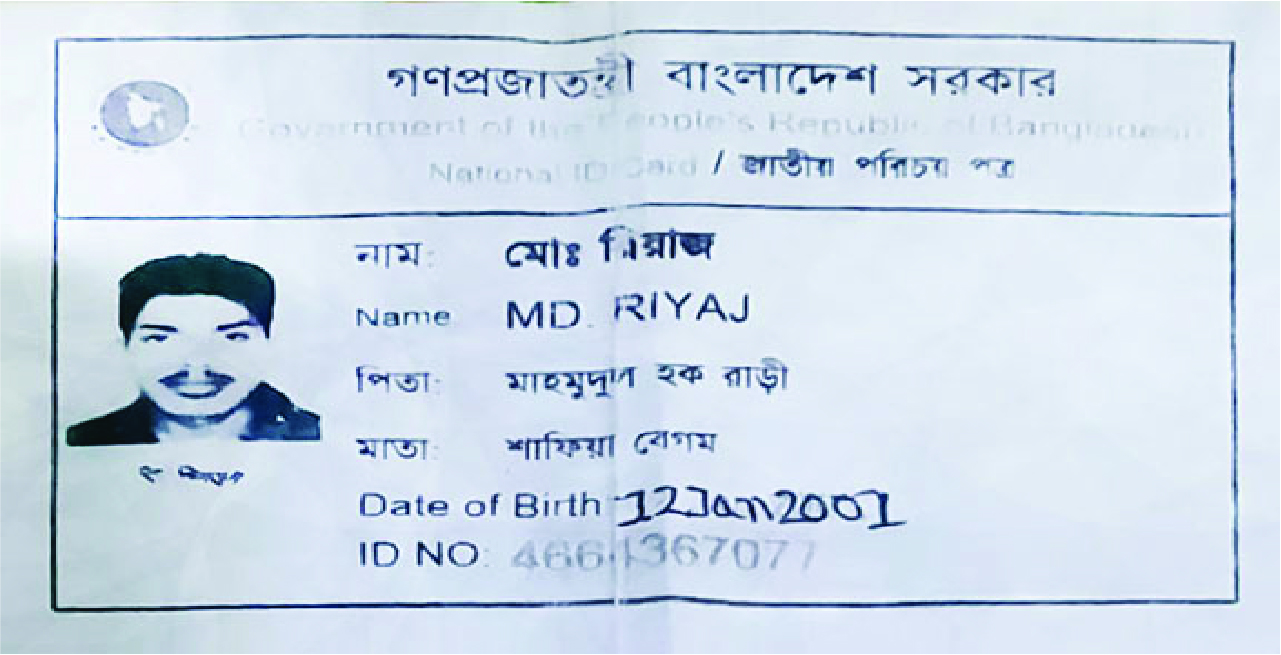 গণপ্রজাতন্ত্রী বাংলাদেশ সরকার
Government of the People's Republic of Bangladesh
National ID Card / জাতীয় পরিচয় পত্র
নাম: মোঃ রিয়াজ
Name MD. RIYAJ
পিতা: মাহমুদুল হক রাড়ী
মাতা: শাফিয়া বেগম
Date of Birth 12Jan2001
ID NO: 4664367077